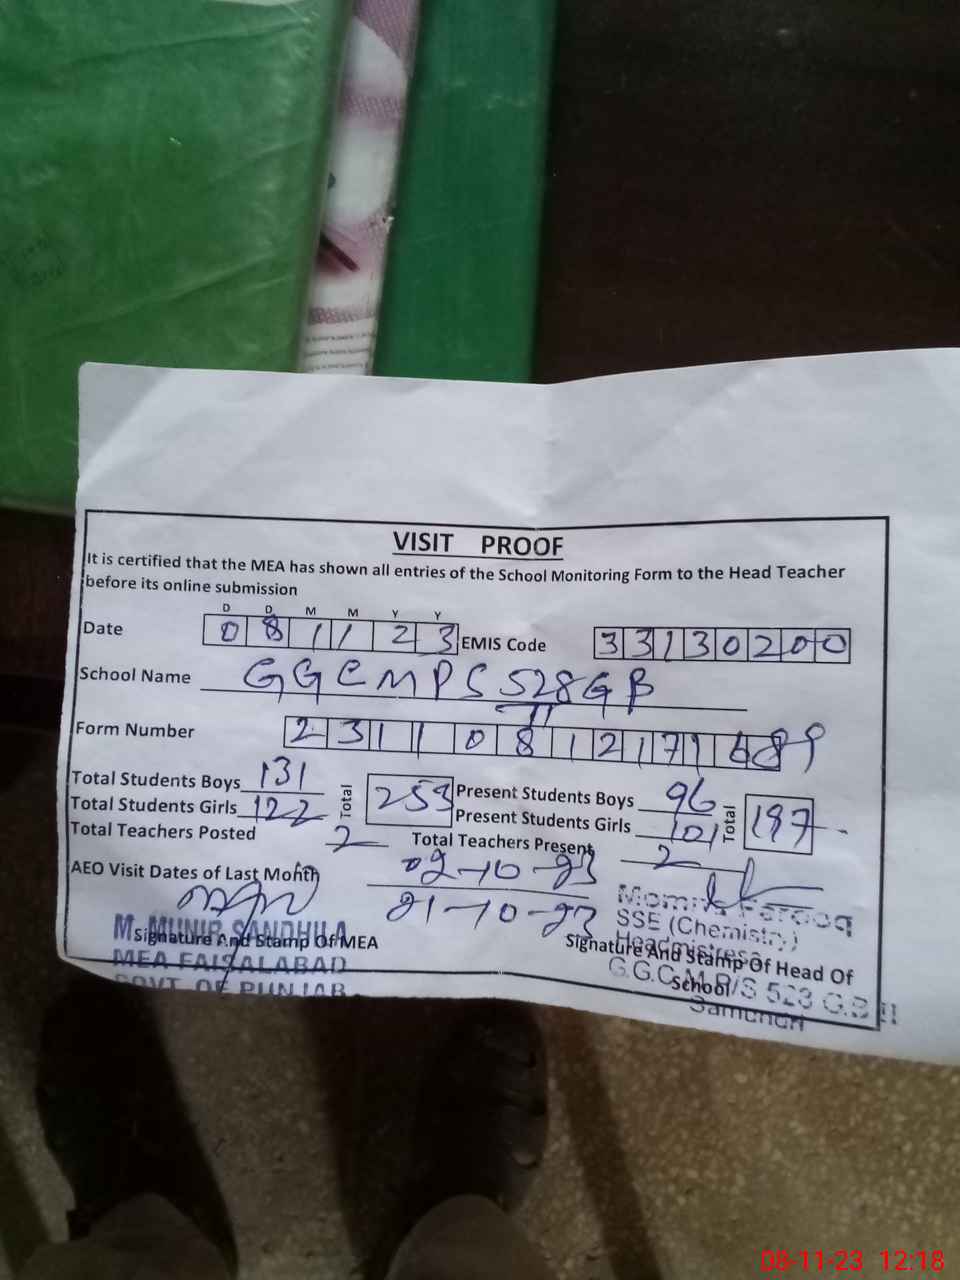 VISIT PROOF
It is certified that the MEA has shown all entries of the School Monitoring Form to the Head Teacher
before its online submission
D D M M Y Y
Date 0 8 1 1 2 3 EMIS Code 3 3 1 3 0 2 0 0
School Name GGCMPS 528GB
II
Form Number 2 3 1 1 0 8 1 2 1 7 1 6 8 9
Total Students Boys 131 Total 253 Present Students Boys 96 Total 197
Total Students Girls 122 Present Students Girls 101
Total Teachers Posted 2 Total Teachers Present 2
AEO Visit Dates of Last Month 02-10-23
21-10-23
M. MUNIR SANDHILA
Signature And Stamp Of MEA
MEA FAISALABAD
GOVT OF PUNJAB
Farooq
SSE (Chemistry)
Headmistress
Signature And Stamp Of Head Of
School
G.G.C.M.P/S 523 G.B II
Samundri
08-11-23 12:18